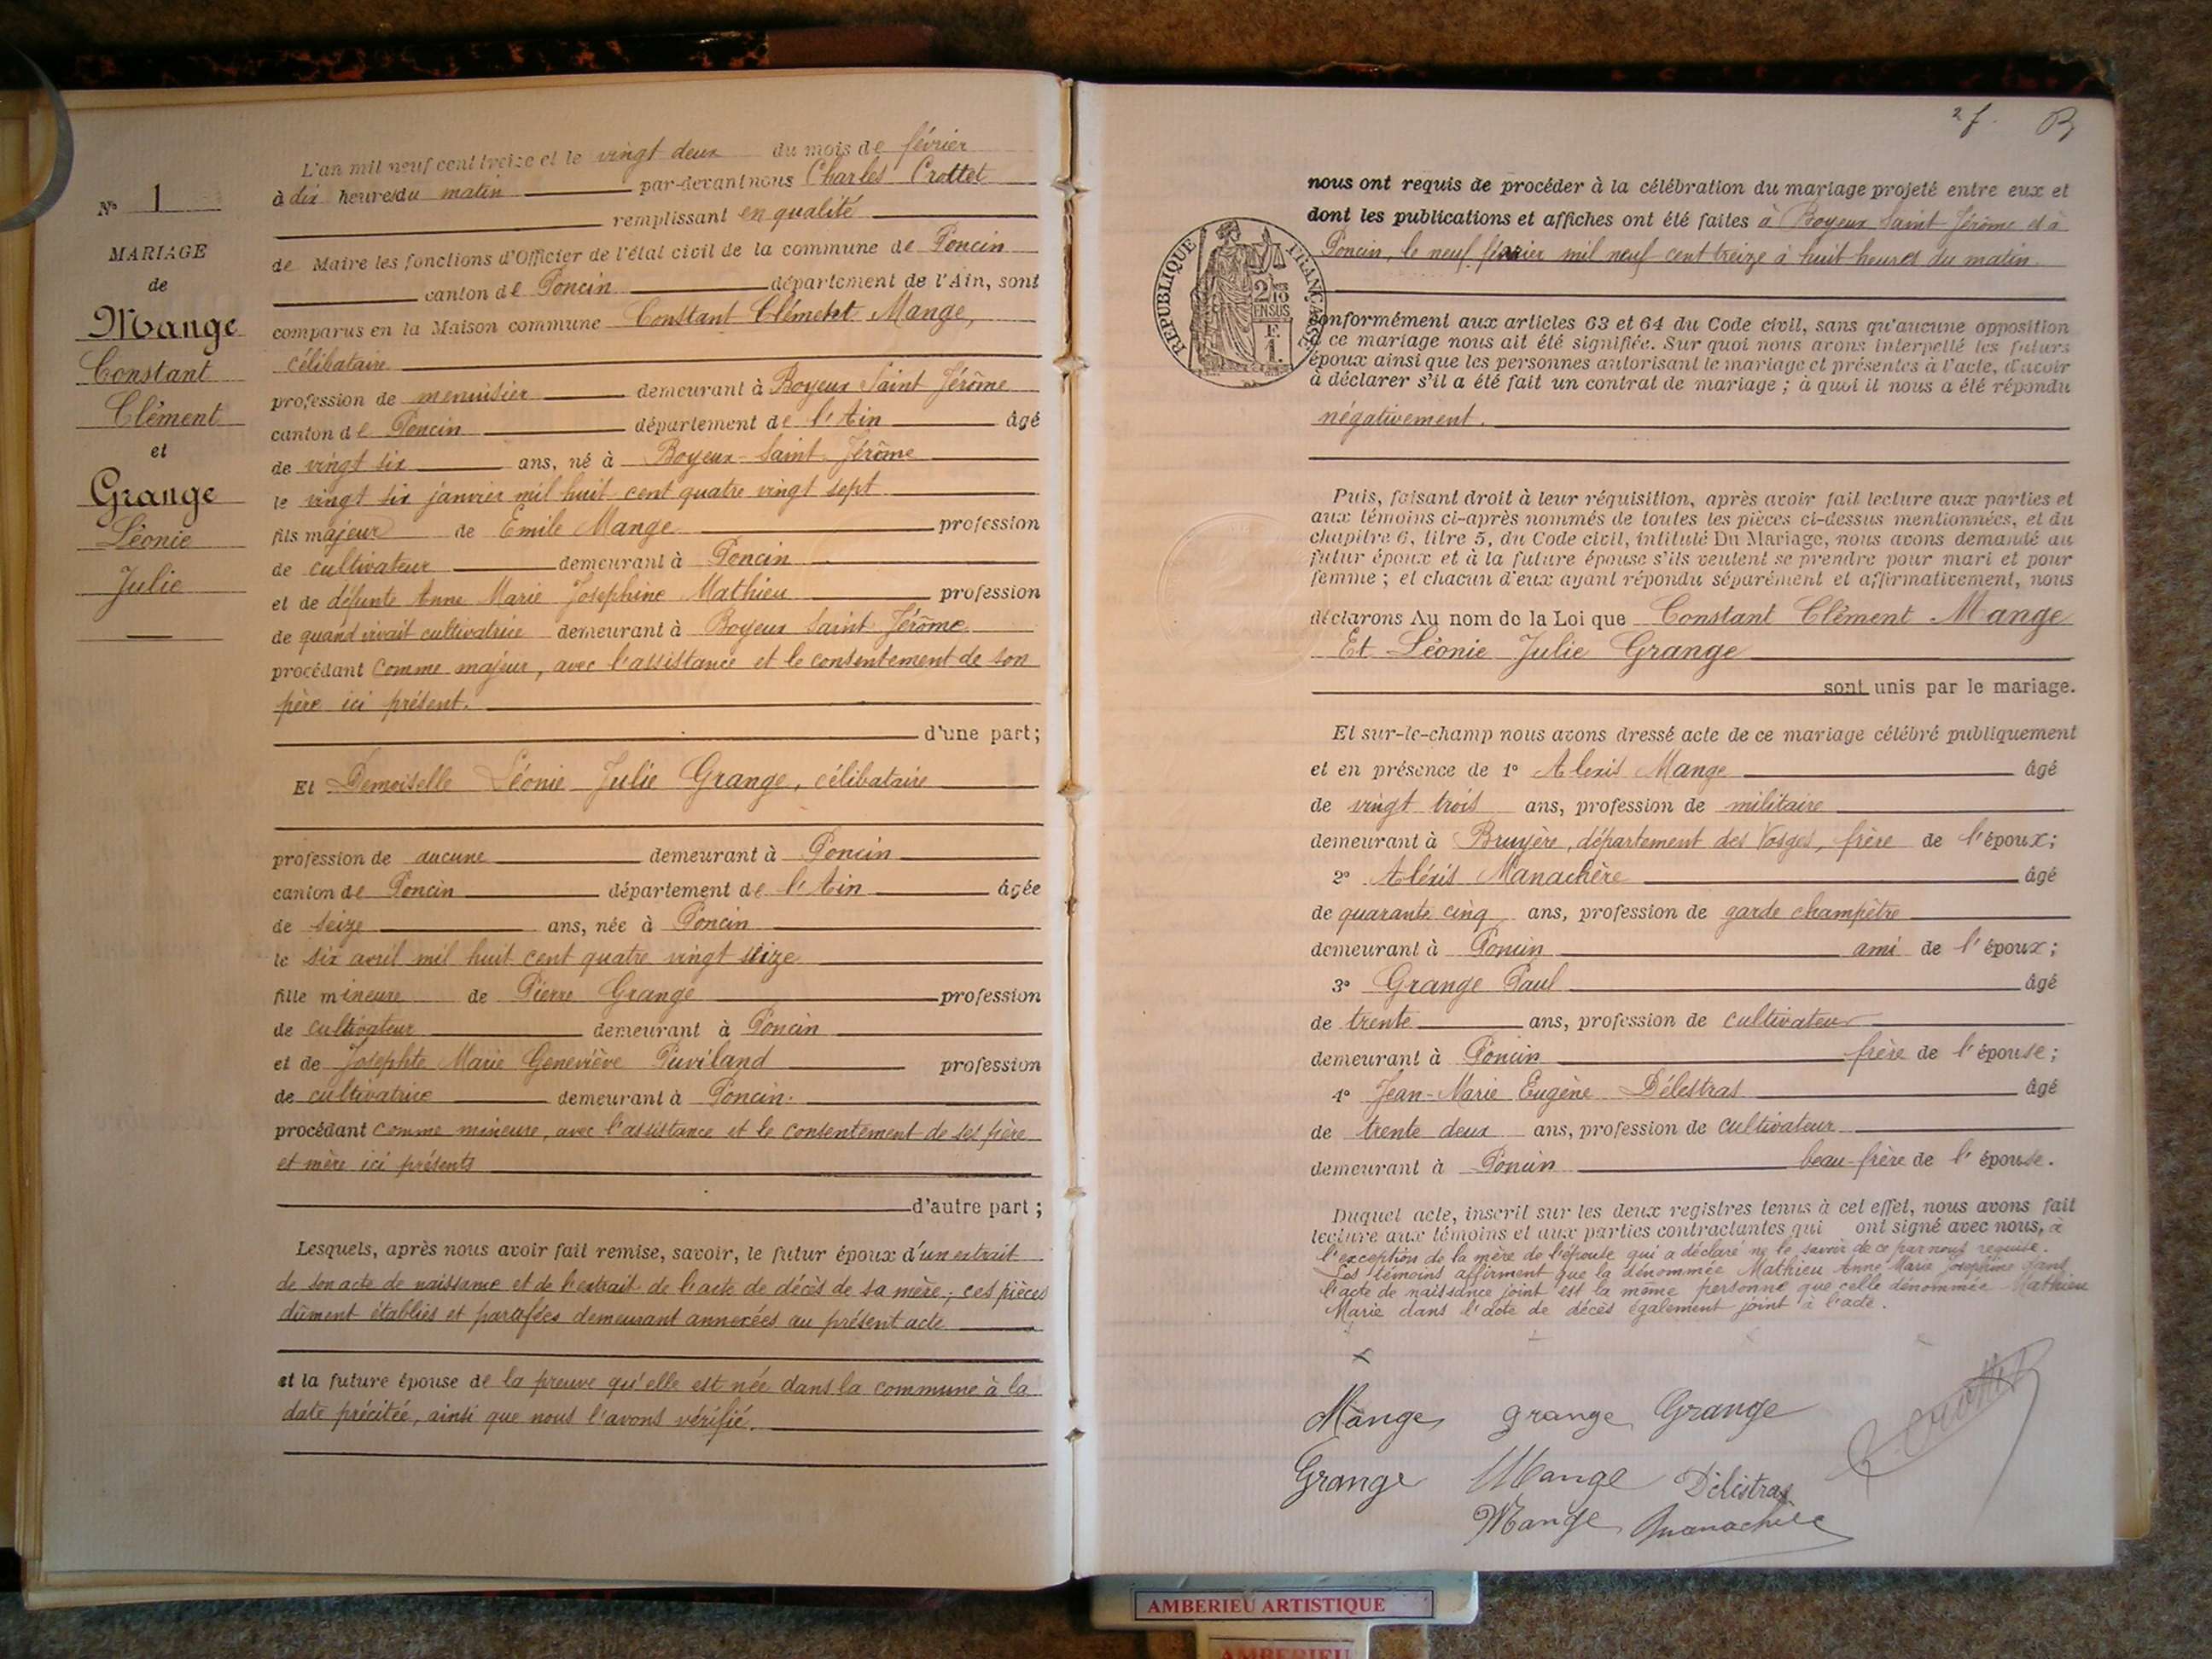 N° 1
MARIAGE
de
Mange
Constant
Clément
et
Grange
Léonie
Julie
L'an mil neuf cent treize et le vingt deux du mois de février
à dix heures du matin par-devant nous Charles Crottet
remplissant en qualité
de Maire les fonctions d'Officier de l'état civil de la commune de Poncin
canton de Poncin département de l'Ain, sont
comparus en la Maison commune Constant Clément Mange,
célibataire
profession de menuisier demeurant à Boyeux Saint Jérôme
canton de Poncin département de l'Ain âgé
de vingt six ans, né à Boyeux-Saint-Jérôme
le vingt six janvier mil huit cent quatre vingt sept
fils majeur de Emile Mange profession
de cultivateur demeurant à Poncin
et de défunte Anne Marie Joséphine Mathieu profession
de quand vivait cultivatrice demeurant à Boyeux Saint Jérôme
procédant comme majeur, avec l'assistance et le consentement de son
père ici présent.
d'une part;
Et Demoiselle Léonie Julie Grange, célibataire
profession de aucune demeurant à Poncin
canton de Poncin département de l'Ain âgée
de seize ans, née à Poncin
le six avril mil huit cent quatre vingt seize
fille mineure de Pierre Grange profession
de cultivateur demeurant à Poncin
et de Josephte Marie Geneviève Puviland profession
de cultivatrice demeurant à Poncin.
procédant comme mineure, avec l'assistance et le consentement de ses père
et mère ici présents
d'autre part;
Lesquels, après nous avoir fait remise, savoir, le futur époux d'un extrait
de son acte de naissance et de l'extrait de l'acte de décès de sa mère; ces pièces
dûment établies et parafées demeurant annexées au présent acte
et la future épouse de la preuve qu'elle est née dans la commune à la
date précitée, ainsi que nous l'avons vérifié.
2 f.
nous ont requis de procéder à la célébration du mariage projeté entre eux et
dont les publications et affiches ont été faites à Boyeux Saint Jérôme et à
Poncin, le neuf février mil neuf cent treize à huit heures du matin
RÉPUBLIQUE FRANÇAISE
2/10
EN SUS
F
1.
conformément aux articles 63 et 64 du Code civil, sans qu'aucune opposition
à ce mariage nous ait été signifiée. Sur quoi nous avons interpellé les futurs
époux ainsi que les personnes autorisant le mariage et présentes à l'acte, d'avoir
à déclarer s'il a été fait un contrat de mariage; à quoi il nous a été répondu
négativement.
Puis, faisant droit à leur réquisition, après avoir fait lecture aux parties et
aux témoins ci-après nommés de toutes les pièces ci-dessus mentionnées, et du
chapitre 6, titre 5, du Code civil, intitulé Du Mariage, nous avons demandé au
futur époux et à la future épouse s'ils veulent se prendre pour mari et pour
femme; et chacun d'eux ayant répondu séparément et affirmativement, nous
déclarons Au nom de la Loi que Constant Clément Mange
Et Léonie Julie Grange
sont unis par le mariage.
Et sur-le-champ nous avons dressé acte de ce mariage célébré publiquement
et en présence de 1° Alexis Mange âgé
de vingt trois ans, profession de militaire
demeurant à Bruyère, département des Vosges, frère de l'époux;
2° Aléxis Manachère âgé
de quarante cinq ans, profession de garde champêtre
demeurant à Poncin ami de l'époux;
3° Grange Paul âgé
de trente ans, profession de cultivateur
demeurant à Poncin frère de l'épouse;
4° Jean-Marie Eugène Délestras âgé
de trente deux ans, profession de cultivateur
demeurant à Poncin beau-frère de l'épouse.
Duquel acte, inscrit sur les deux registres tenus à cet effet, nous avons fait
lecture aux témoins et aux parties contractantes qui ont signé avec nous, à
l'exception de la mère de l'épouse qui a déclaré ne le savoir de ce par nous requise.
Les témoins affirment que la dénommée Mathieu Anne Marie Joséphine dans
l'acte de naissance joint est la même personne que celle dénommée Mathieu
Marie dans l'acte de décès également joint à l'acte.
Mange grange Grange
Crottet
Grange Mange Délestras
Mange Manachère
AMBERIEU ARTISTIQUE
AMBERIEU